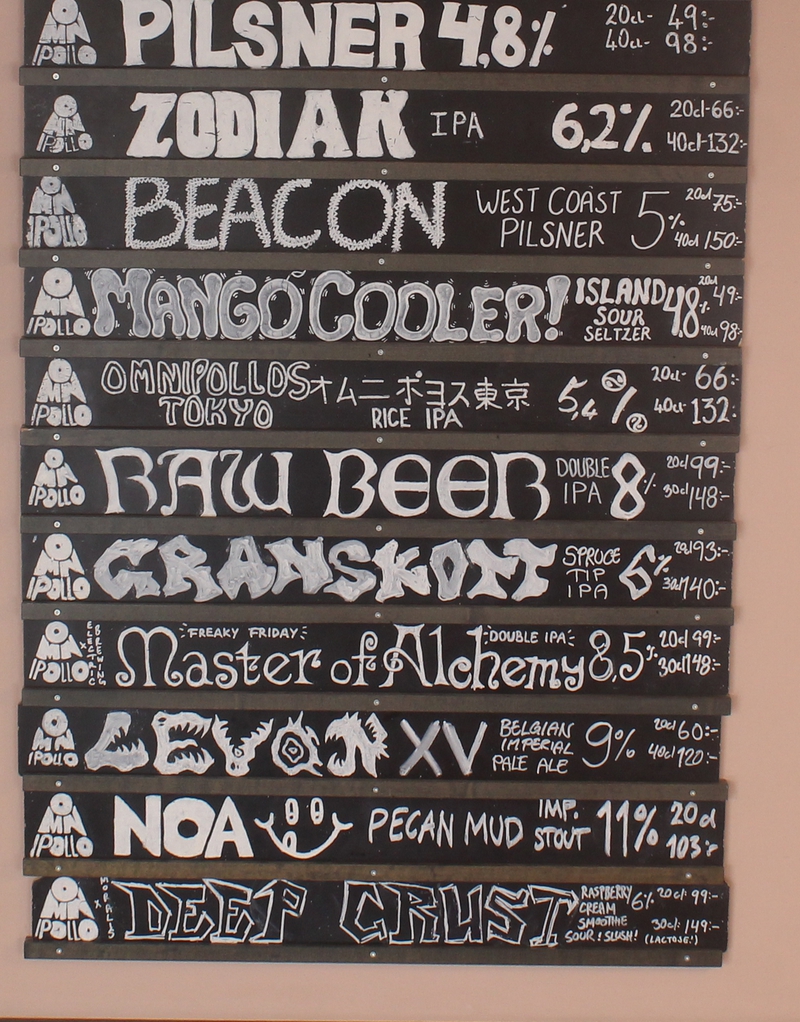 OMNIPOLLO PILSNER 4,8% 20cl- 49:-
40cl- 98:-
OMNIPOLLO ZODIAK IPA 6,2% 20cl-66:-
40cl-132:-
OMNIPOLLO BEACON WEST COAST PILSNER 5% 20cl 75:-
40cl 150:-
OMNIPOLLO MANGO COOLER! ISLAND SOUR SELTZER 4,8% 20cl 49:-
40cl 98:-
OMNIPOLLO OMNIPOLLOS TOKYO オムニポヨス東京 RICE IPA 5,4% 20cl- 66:-
40cl- 132:-
OMNIPOLLO RAW BEER DOUBLE IPA 8% 20cl 99:-
30cl 148:-
OMNIPOLLO GRANSKOTT SPRUCE TIP IPA 6% 20cl 93:-
30cl 140:-
OMNIPOLLO x ELECTRIC BREWING FREAKY FRIDAY: Master of Alchemy DOUBLE IPA 8,5% 20cl 99:-
30cl 148:-
OMNIPOLLO LEVON XV BELGIAN IMPERIAL PALE ALE 9% 20cl 60:-
40cl 120:-
OMNIPOLLO NOA PECAN MUD IMP. STOUT 11% 20cl
103:-
OMNIPOLLO x MORALIS DEEP CRUST RASPBERRY CREAM SMOOTHIE SOUR! SLUSH! 6% 20cl: 99:-
30cl: 149:-
(LACTOSE!)